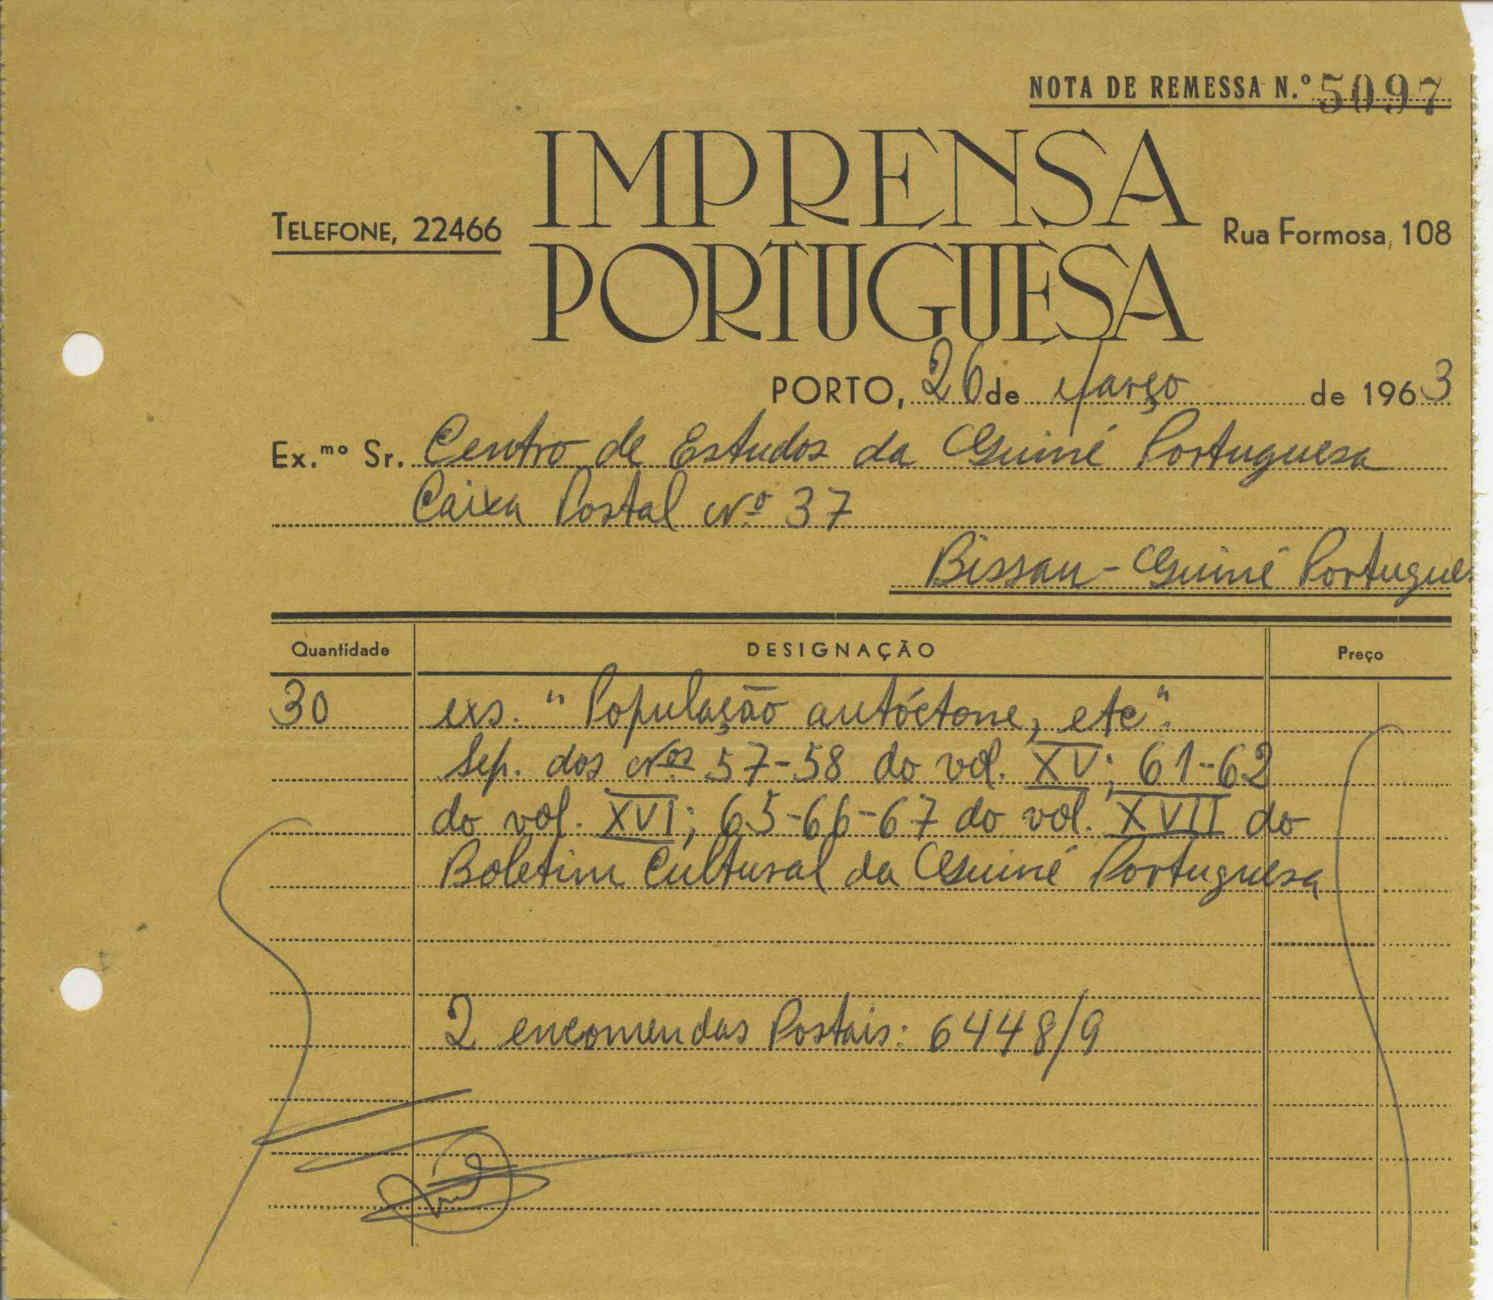 NOTA DE REMESSA N.º 5097
IMPRENSA
PORTUGUESA
TELEFONE, 22466
Rua Formosa, 108
PORTO, 26 de Março de 1963
Ex.mo Sr. Centro de Estudos da Guiné Portuguesa
Caixa Postal nº 37
Bissau - Guiné Portugues
Quantidade DESIGNAÇÃO Preço
30 exs. "População autóctone, etc".
Sep. dos nos 57-58 do vol. XV; 61-62
do vol. XVI; 65-66-67 do vol. XVII do
Boletim Cultural da Guiné Portuguesa
2 encomendas Postais: 6448/9